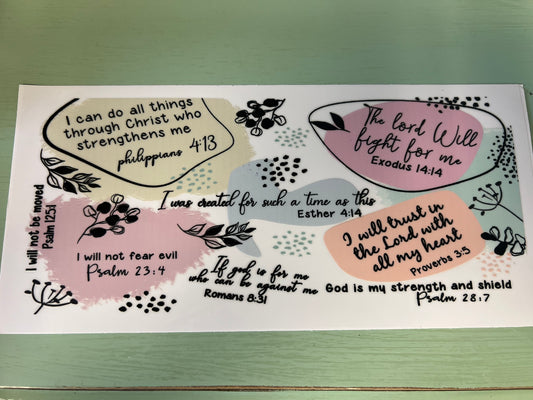 I can do all things
through Christ who
strengthens me
philippians 4:13
The lord Will
fight for me
Exodus 14:14
I was created for such a time as this
Esther 4:14
I will not be moved
Psalm 125:1
I will not fear evil
Psalm 23:4
If god is for me
who can be against me
Romans 8:31
I will trust in
the Lord with
all my heart
Proverbs 3:5
God is my strength and shield
Psalm 28:7